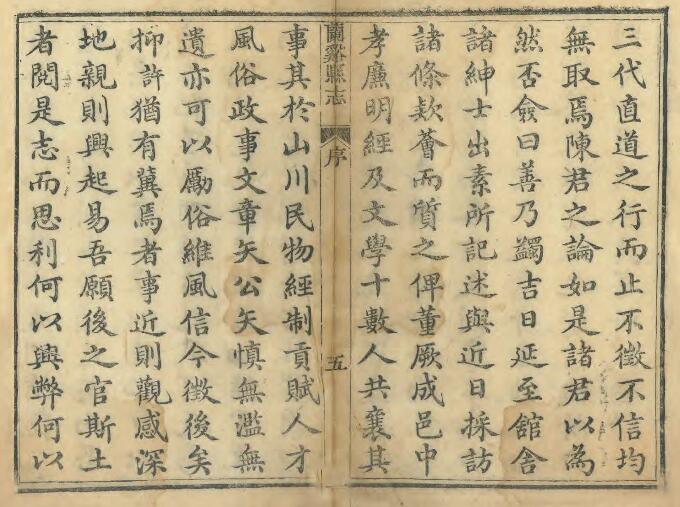 三代直道之行而止不徵不信均
無取焉陳君之論如是諸君以為
然否僉曰善乃蠲吉日延至舘舍
諸紳士出素所記述與近日採訪
諸條欵薈而質之俾董厥成邑中
孝廉明經及文學十數人共襄其
蘭谿縣志 序 五
事其於山川民物經制貢賦人才
風俗政事文章矢公矢慎無濫無
遺亦可以勵俗維風信今徵後矣
抑許猶有冀焉者事近則觀感深
地親則興起易吾願後之官斯土
者閱是志而思利何以興弊何以